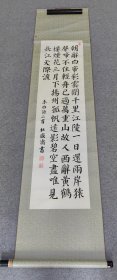 朝辭白帝彩雲間千里江陵一日還兩岸猿
聲啼不住輕舟已過萬重山故人西辭黃鶴
樓煙花三月下揚州孤帆遠影碧空盡唯見
長江天際流
李白詩二首 書